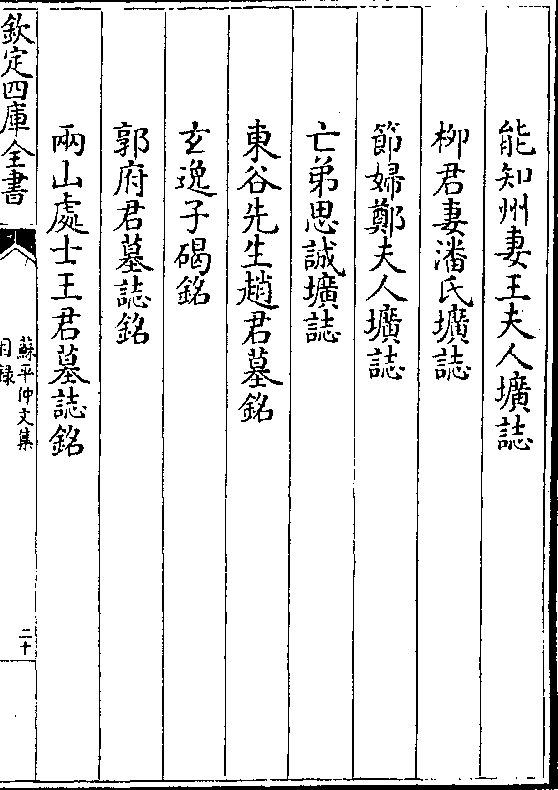 能知州妻王夫人壙誌
柳君妻潘氏壙誌
節婦鄭夫人壙誌
亡弟思誠壙誌
東谷先生趙君墓銘
玄逸子碣銘
郭府君墓誌銘
兩山處士王君墓誌銘
欽定四庫全書
蘇平仲文集
目録
二十